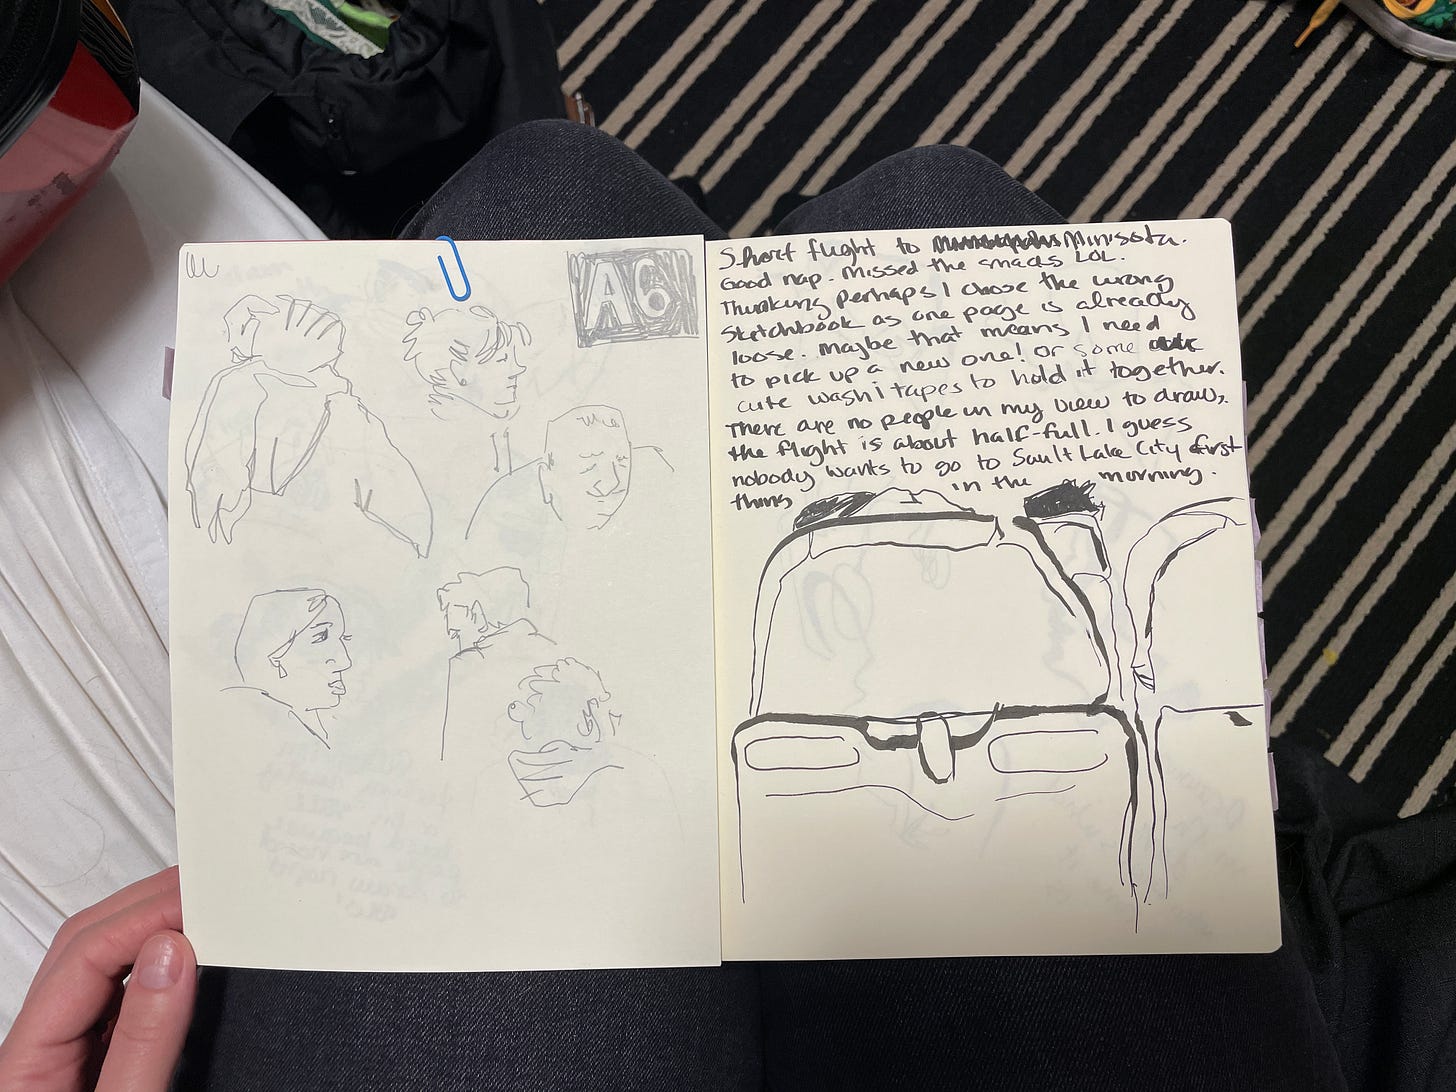 A6
Short flight to Minisota.
Good nap. Missed the snacks LOL.
Thinking perhaps I chose the wrong
sketchbook as one page is already
loose. Maybe that means I need
to pick up a new one! or some
cute washi tapes to hold it together.
There are no people in my view to draw,
the flight is about half-full. I guess
nobody wants to go to Sault Lake City first
thing in the morning.